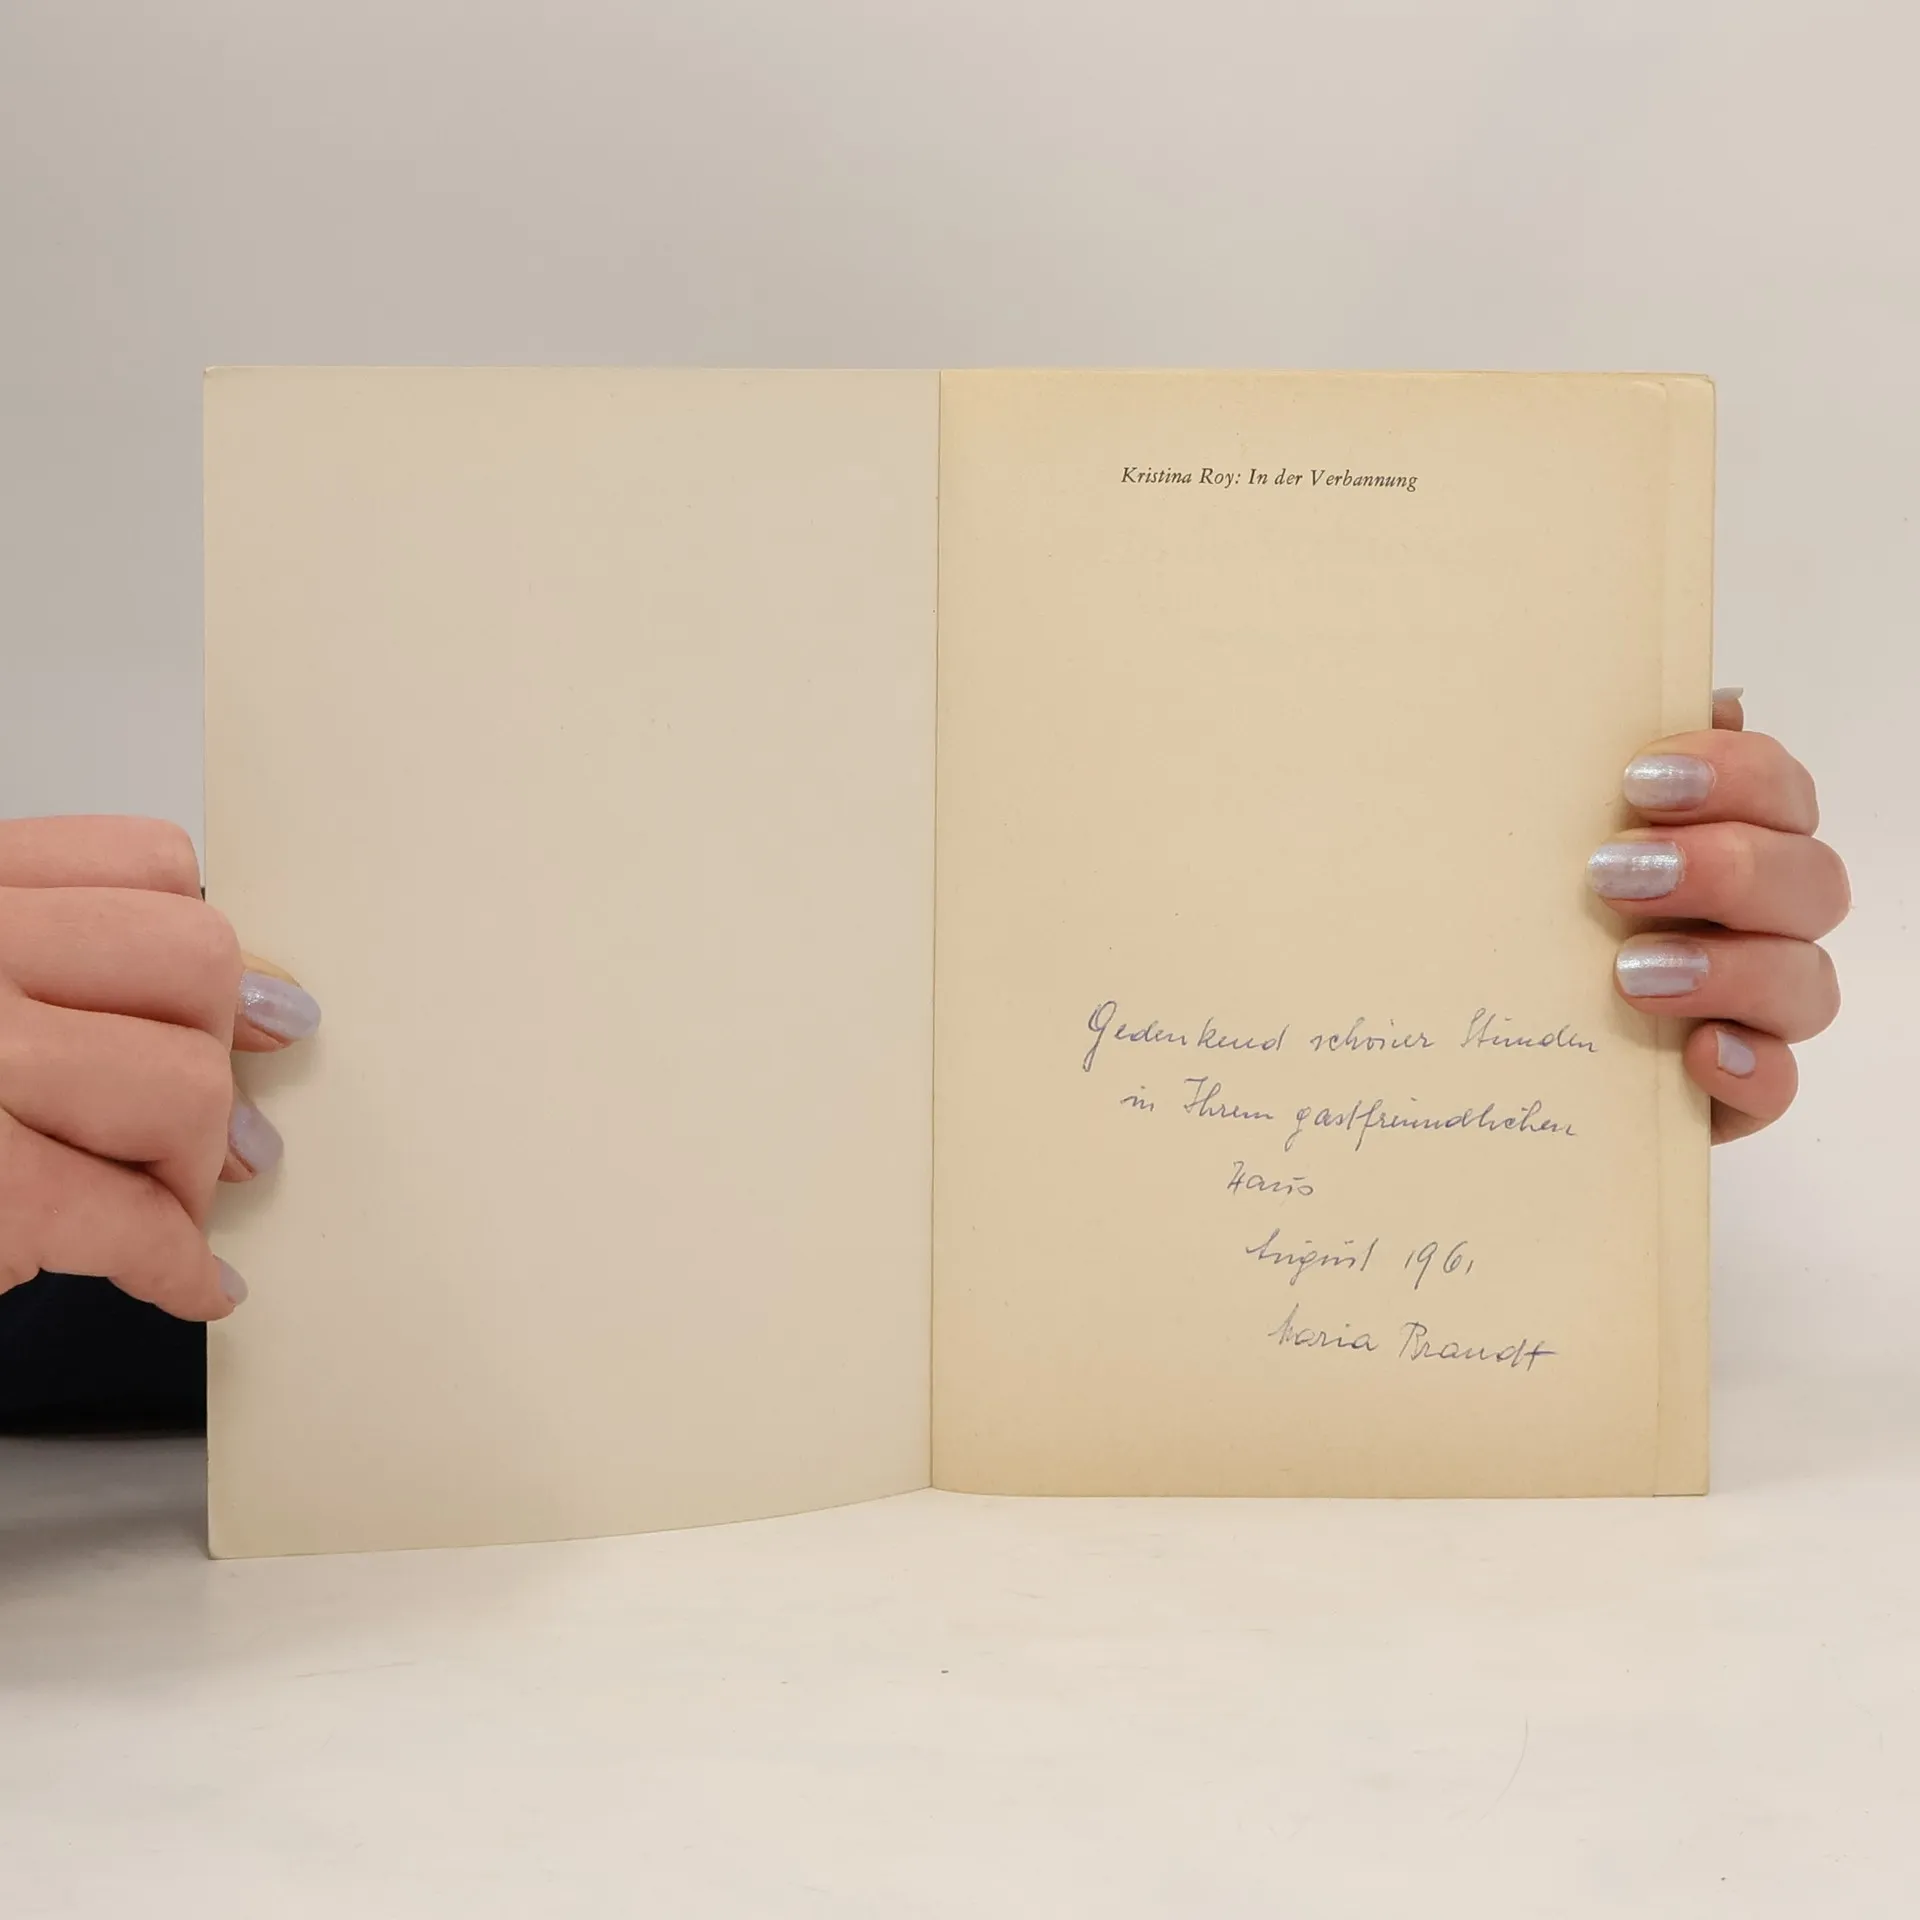 Kristina Roy: In der Verbannung
Gedenkend schöner Stunden
in Ihrem gastfreundlichen
Haus
August 1961
Maria Brandt